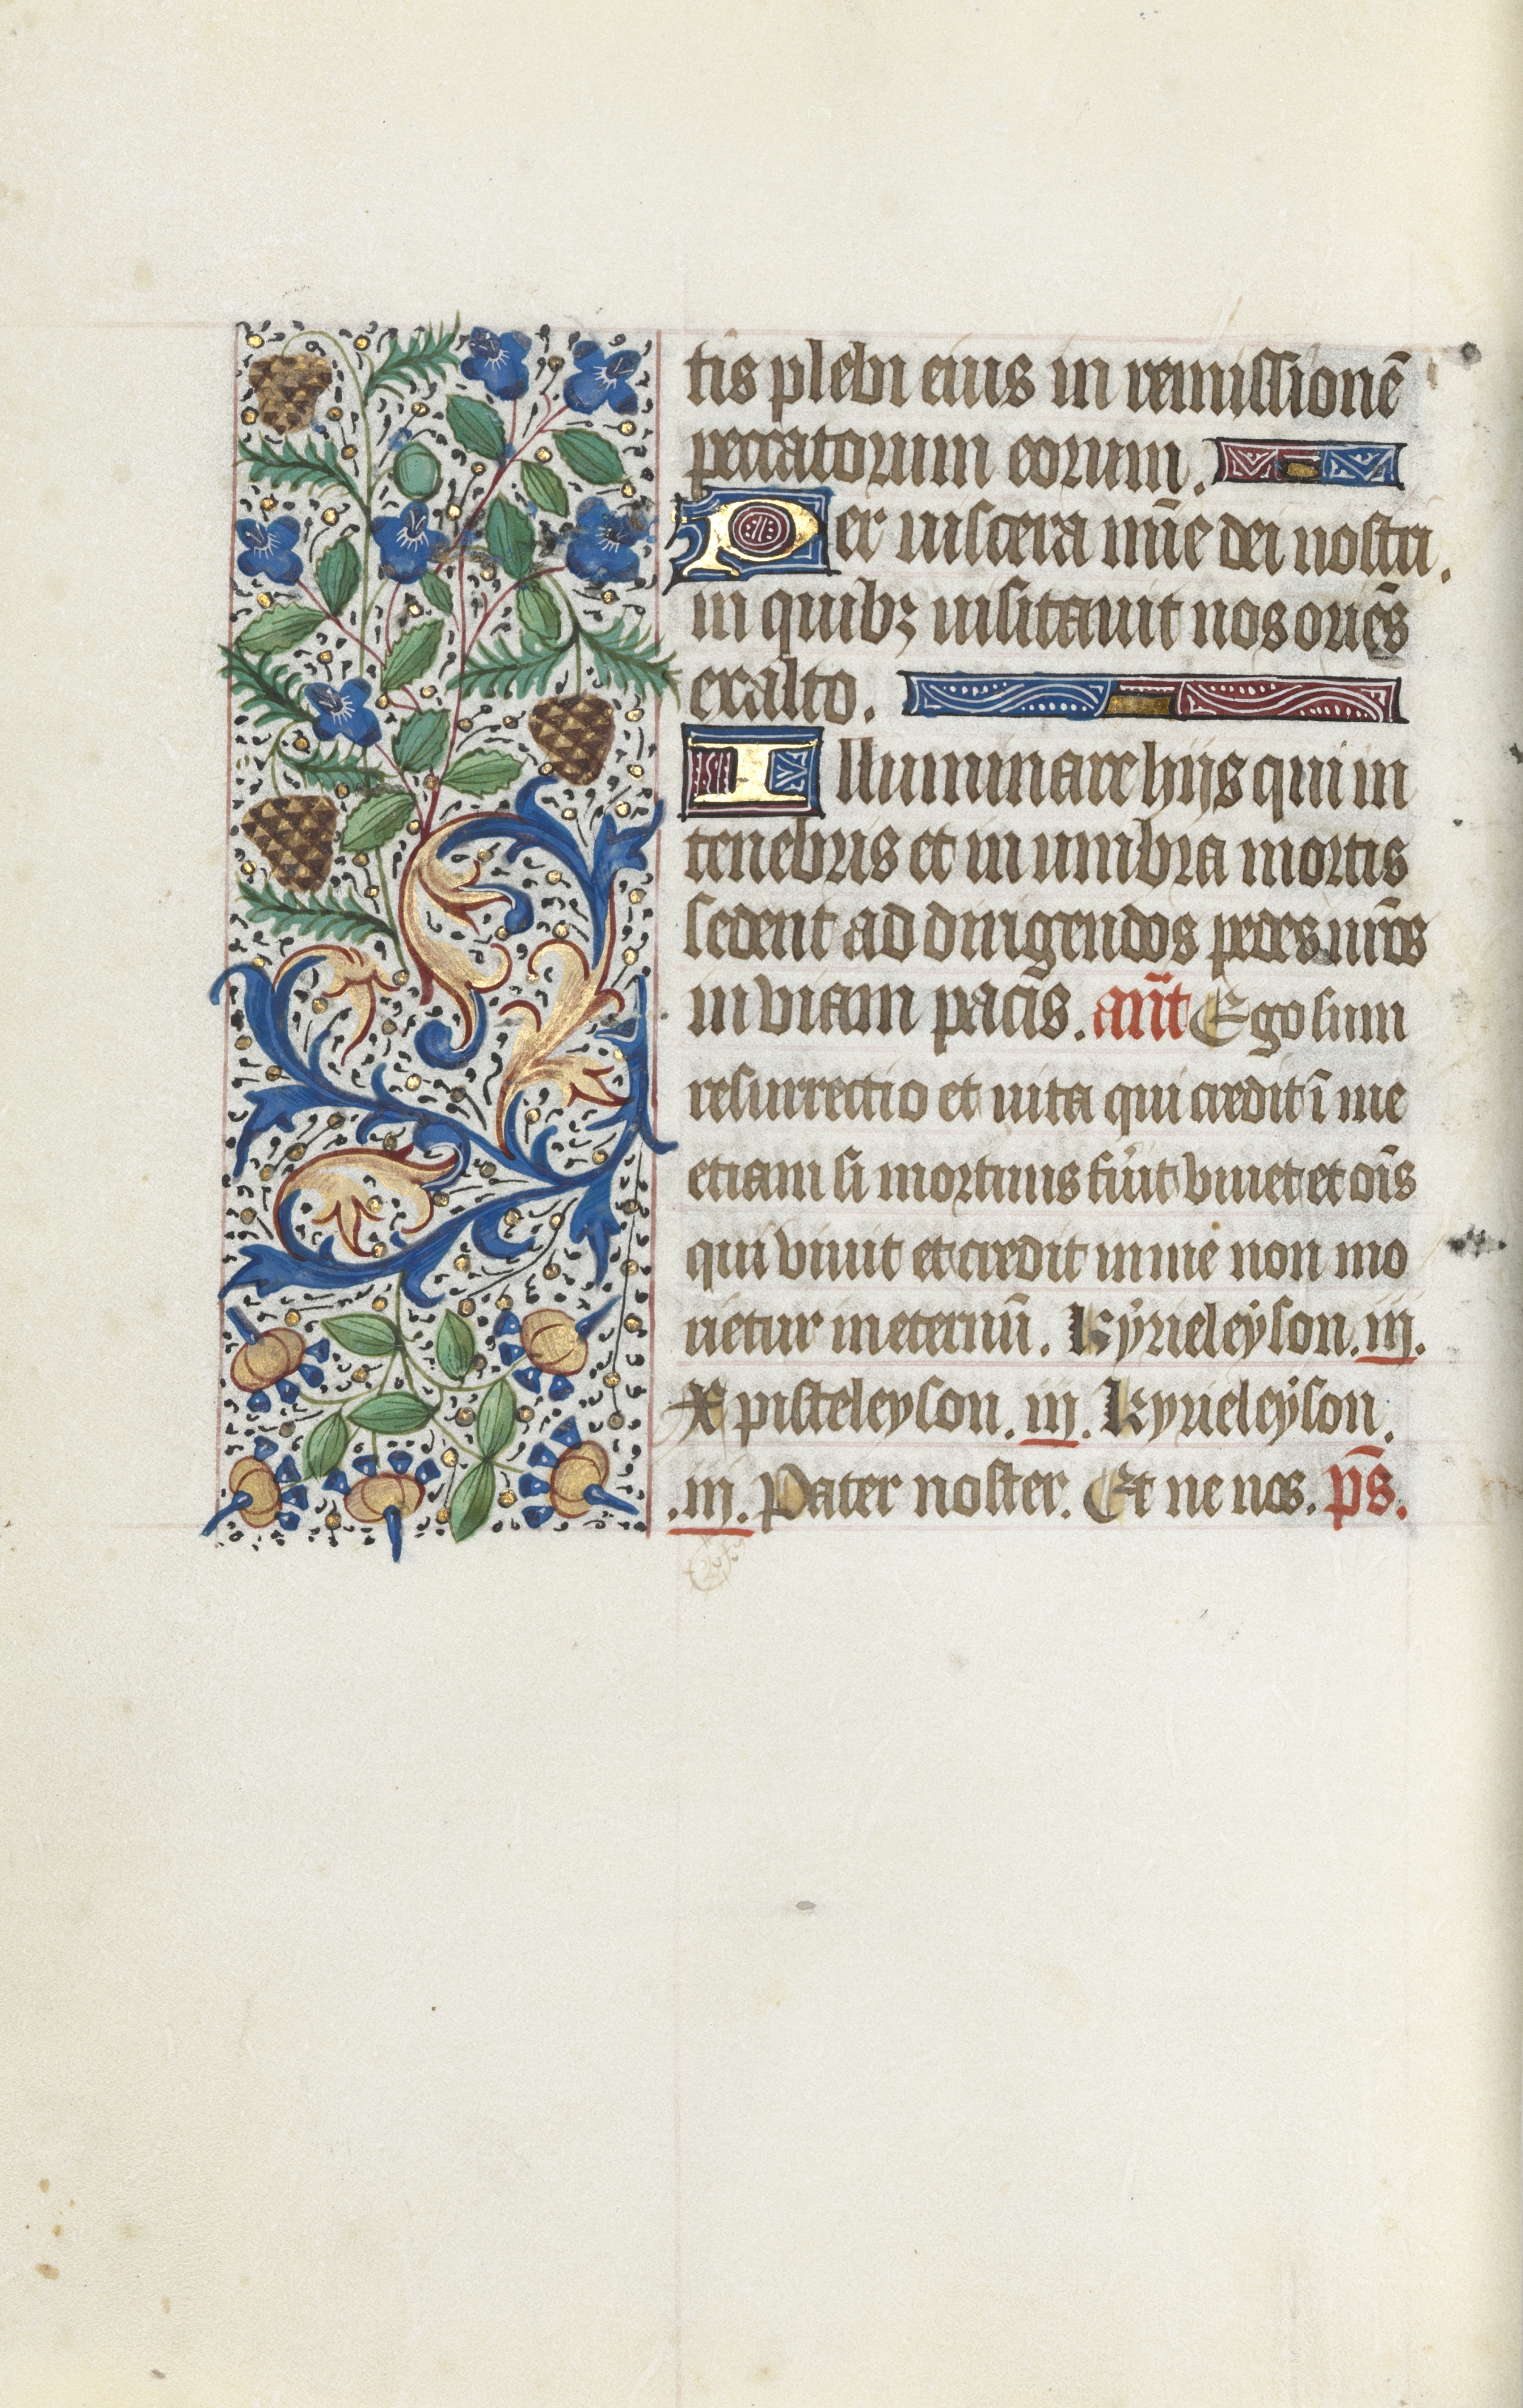 tis plebi eius in remissionē
peccatorum eorum.
Per uiscera mīe dei nostri.
in quibꝫ uisitauit nos oriēs
exalto.
Illuminare hijs qui in
tenebris et in umbra mortis
sedent ad dirigendos pedes nr̄os
in viam pacis. an̄t Ego sum
resurrectio et uita qui credit ī me
etiam si mortuus fu'it viuet et oīs
qui viuit et credit in me non mo
rietur in eternū. Kyrieleyson. iij.
Xpisteleyson. iij. Kyrieleyson.
.iij. Pater noster. Et ne nos. p̄s.